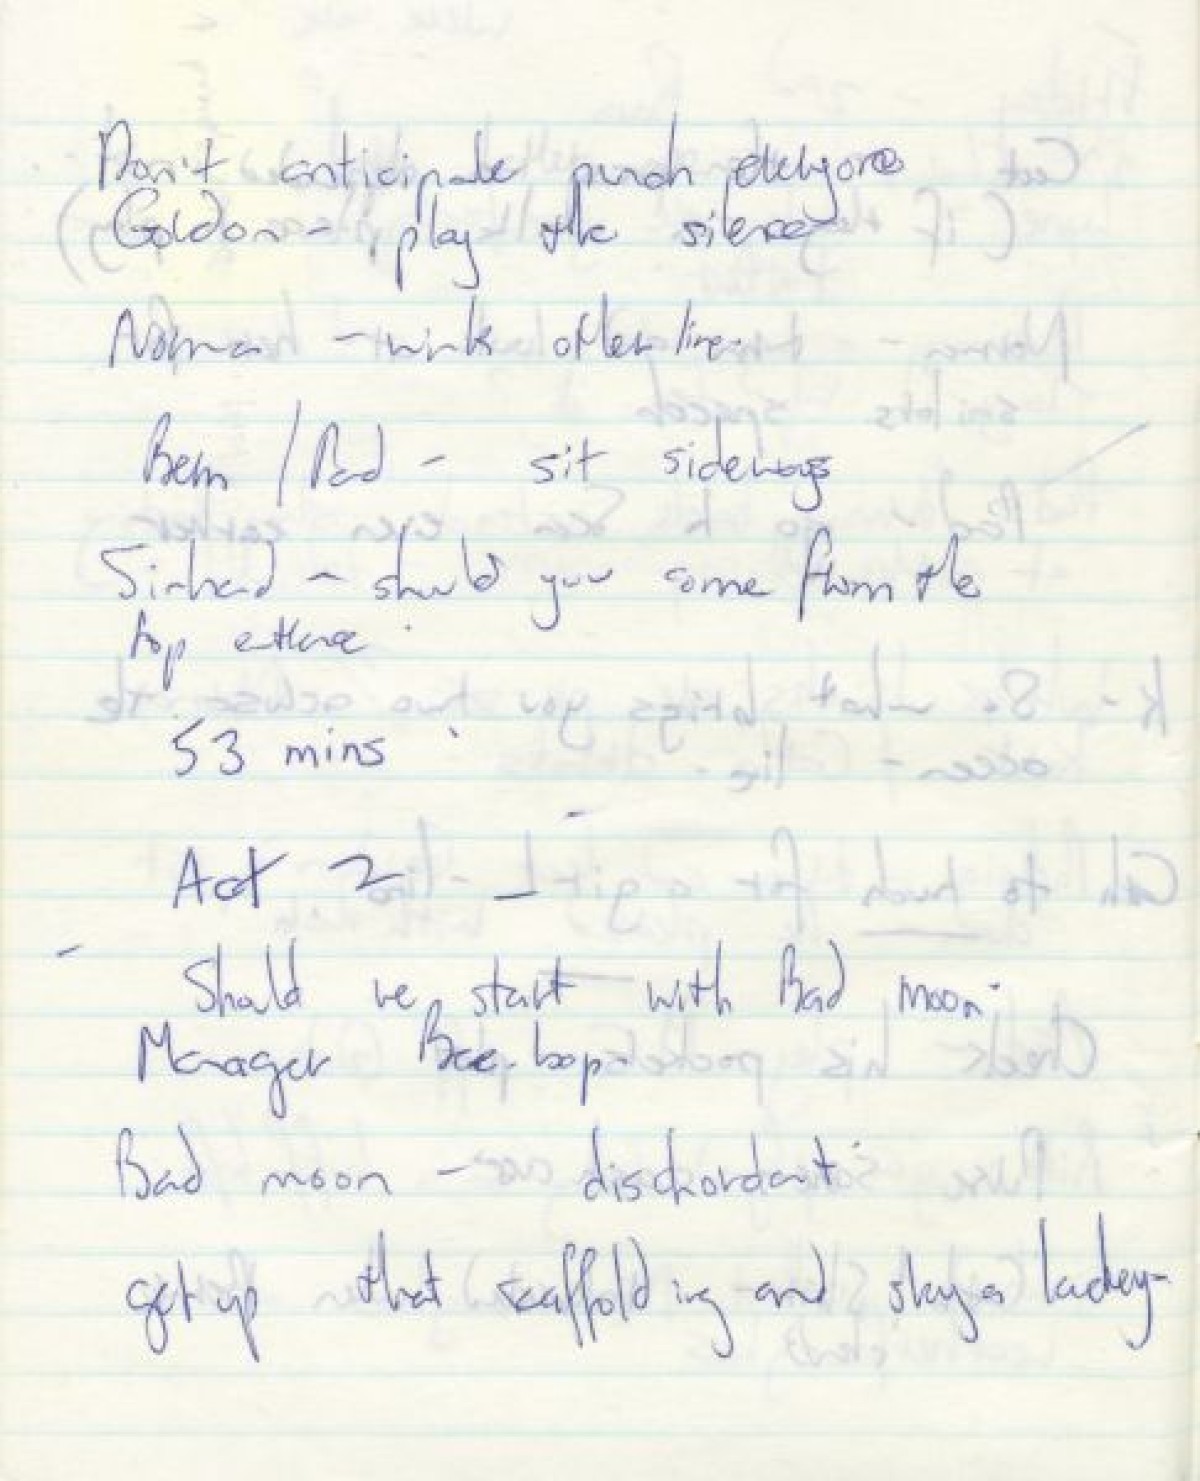 Don't anticipate punch
Goldon - play the silence
Norma - wink after line.
Bern / Pad - sit sideways
Sinead - should you come from the
top entrance
53 mins
Act 2 -
Should we start with Bad moon.
Manager Bee bop
Bad moon - dischordant
get up that scaffolding and stay a lackey-